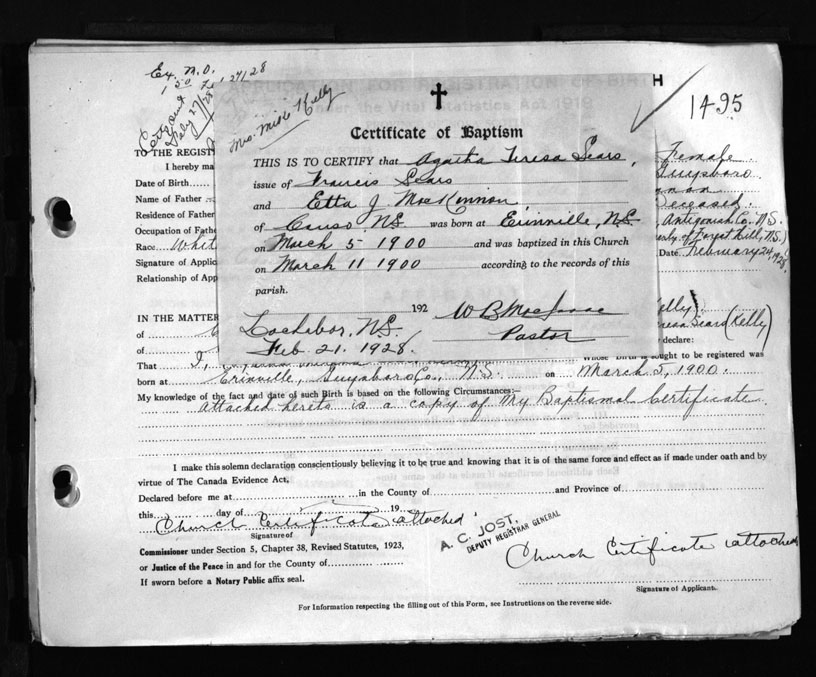 Ex. N.O.
APPLICATION FOR REGISTRATION OF BIRTH
Under the Vital Statistics Act 1919
1495
Mrs. Mick Kelly
Certificate of Baptism
THIS IS TO CERTIFY that Agatha Teresa Sears,
issue of Francis Sears
and Etta J. MacKinnon,
of Canso, N.S. was born at Erinville, N.S.
on March 5 1900 and was baptized in this Church
on March 11 1900 according to the records of this
parish.
192
Lochaber, N.S.
Feb. 21. 1928.
W B MacIsaac
Pastor
TO THE REGISTR
I hereby ma
Date of Birth
Name of Father
Residence of Fathe
Occupation of Fathe
Race Whit
Signature of Applic
Relationship of App
Female
Guysboro
Deceased
Antigonish Co., N.S.
of Forest Hill, N.S.)
Date February 24, 1928.
IN THE MATTER
of
of
elly)
resa Sears (Kelly)
declare:
That I, whose Birth is sought to be registered was
born at Erinville, Guysboro Co., N.S. on March 5, 1900.
My knowledge of the fact and date of such Birth is based on the following Circumstances:—
Attached hereto is a copy of my Baptismal Certificate
I make this solemn declaration conscientiously believing it to be true and knowing that it is of the same force and effect as if made under oath and by
virtue of The Canada Evidence Act.
Declared before me at in the County of and Province of
this day of 19
Church Certificate attached
Signature of
Commissioner under Section 5, Chapter 38, Revised Statutes, 1923,
or Justice of the Peace in and for the County of
If sworn before a Notary Public affix seal.
A. C. JOST,
DEPUTY REGISTRAR GENERAL
Church Certificate attached
Signature of Applicant.
For Information respecting the filling out of this Form, see Instructions on the reverse side.